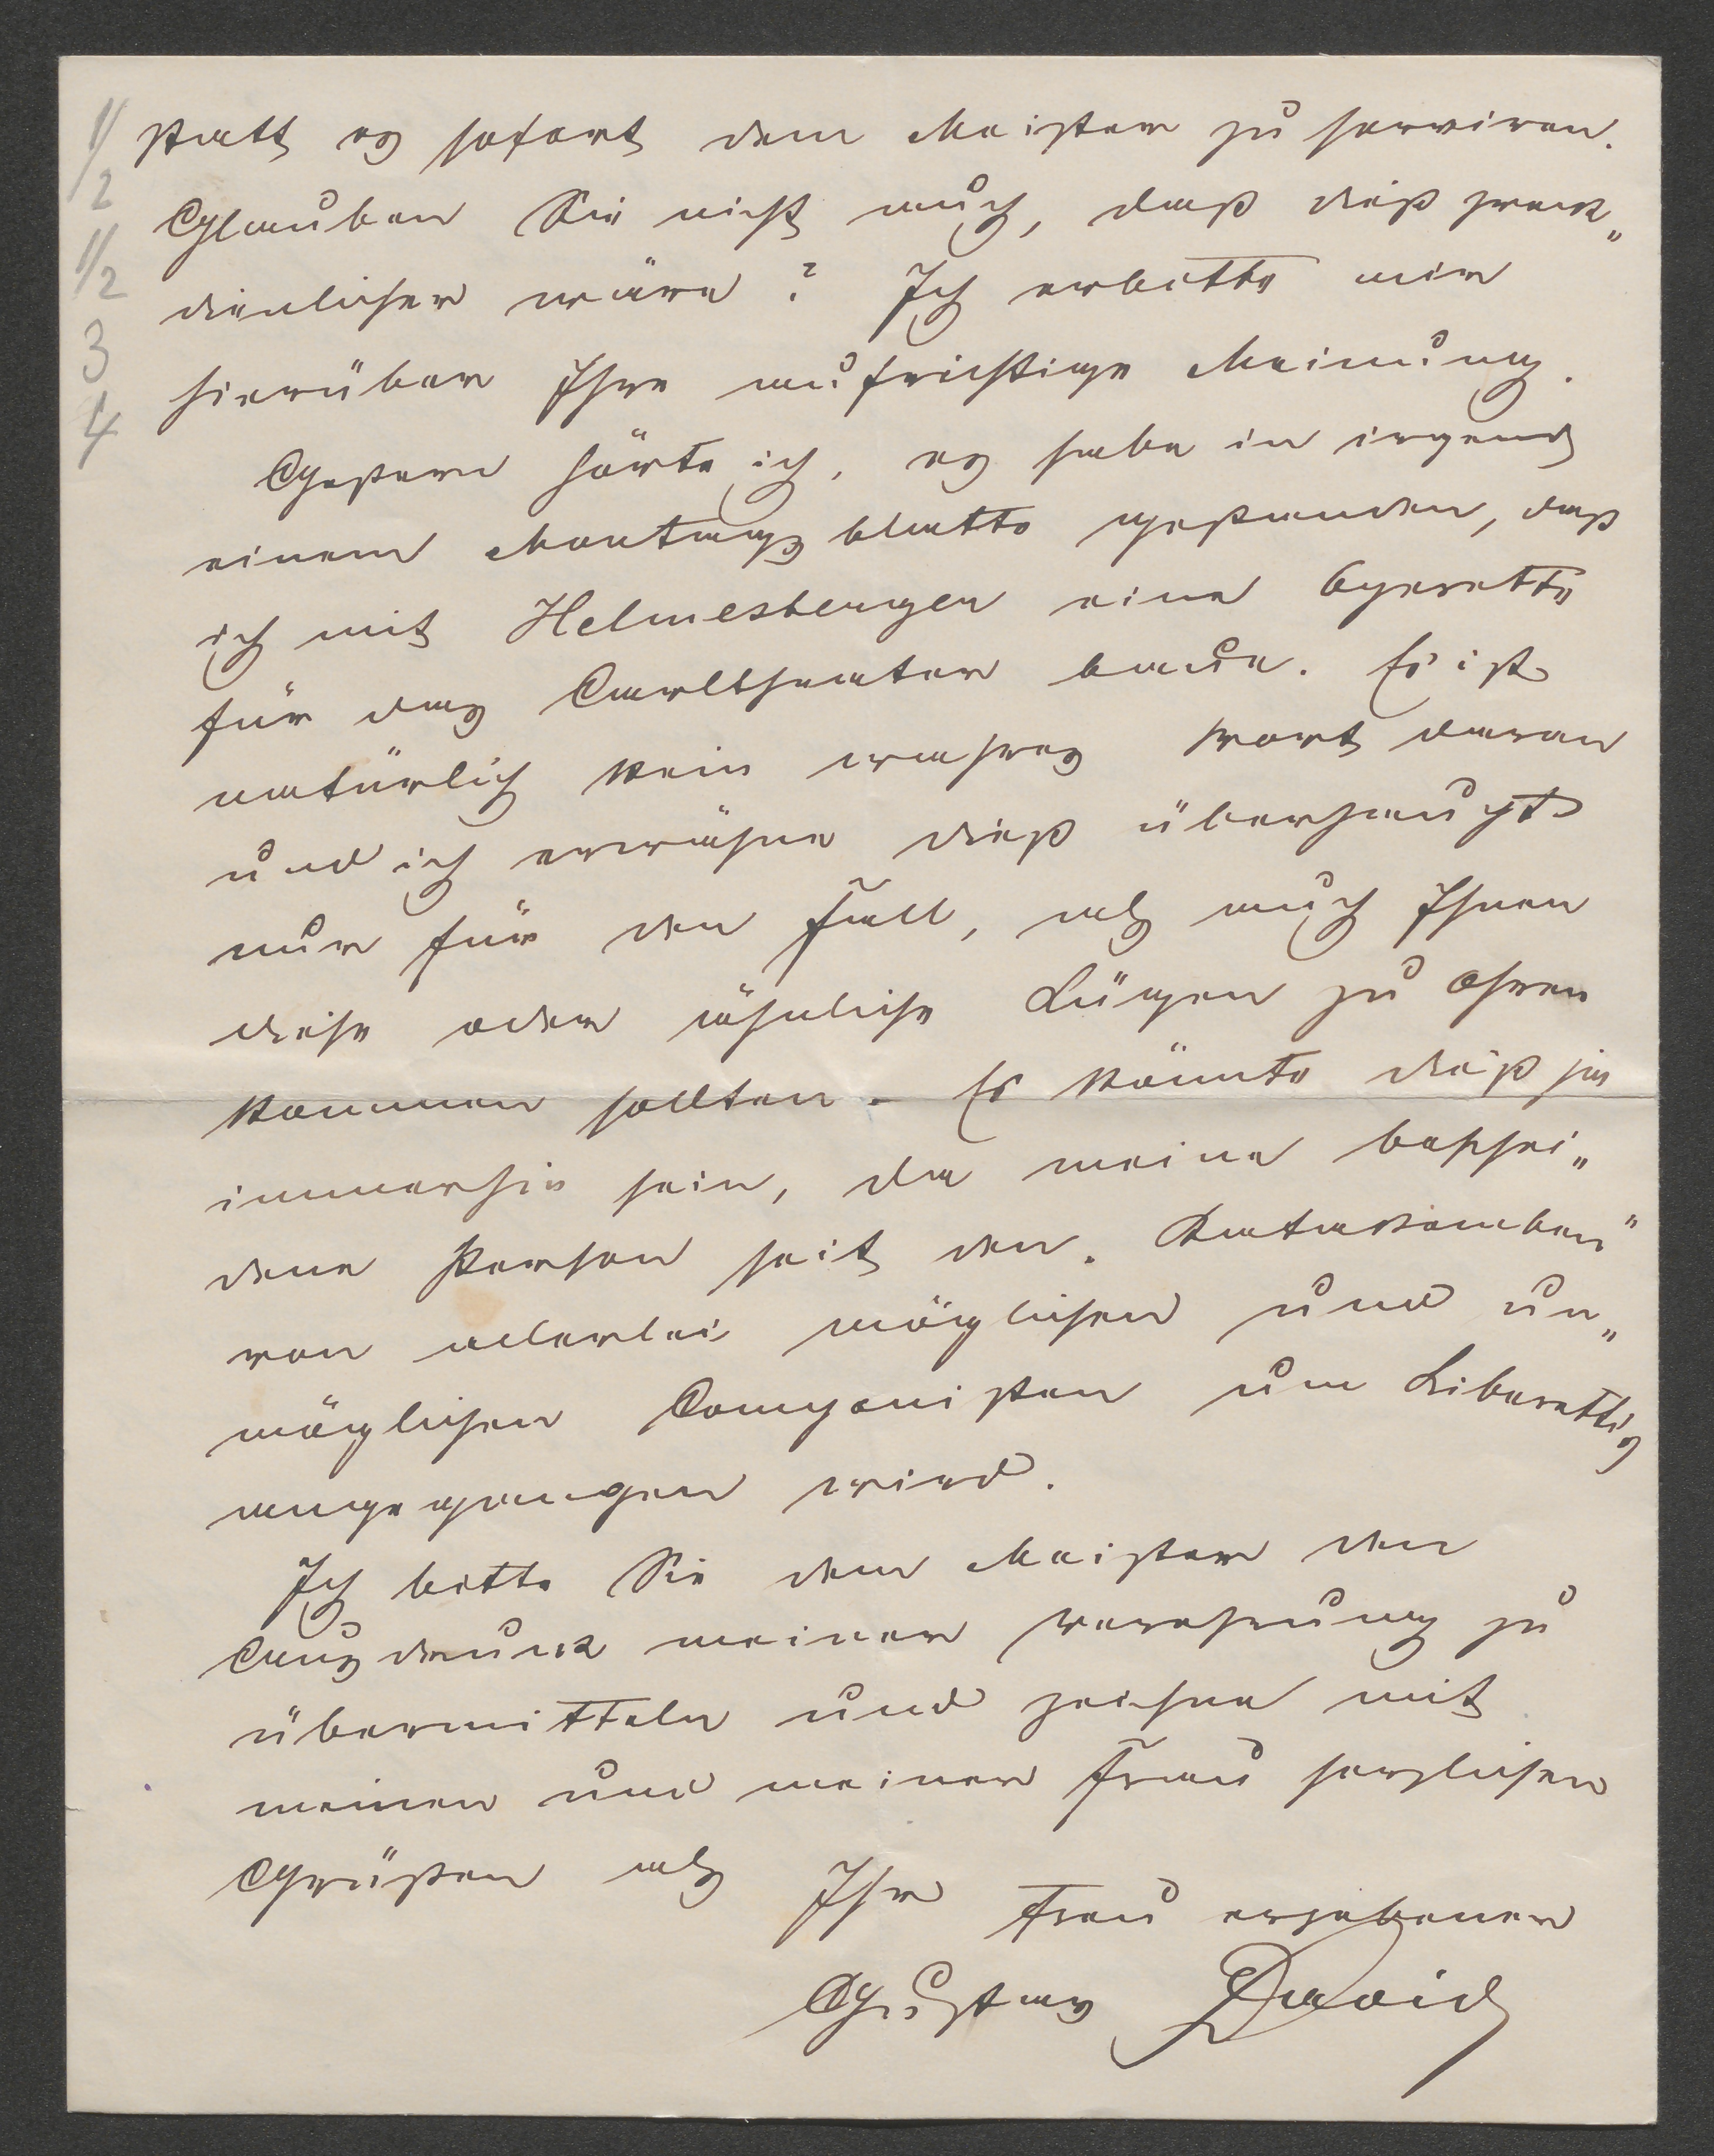 1/2
1/2
3
4
statt es sofort dem Meister zu serviren.
Glauben Sie nicht auch, daß dieß zweck„
dienlicher wäre? Ich erbitte mir
hierüber Ihre aufrichtige Meinung.
Gestern hörte ich, es habe in irgend
einem Montagsblatte gestanden, daß
ich mit Helmesberger eine Operette
für das Carltheater baue. Es ist
natürlich kein wahres Wort daran
und ich erwähne dieß überhaupt
nur für den Fall, als auch Ihnen
diese oder ähnliche Lügen zu Ohren
kommen sollten. Es könnte dieß ja
immerhin sein, da meine beschei„
dene Person seit den „Katakomben“
von allerlei möglichen und un„
möglichen Componisten um Librettis
angegangen wird.
Ich bitte Sie dem Meister den
Ausdruck meiner Verehrung zu
übermitteln und zeichne mit
meinen und meiner Frau herzlichen
Grüßen als Ihr treu ergebener
Gustav David